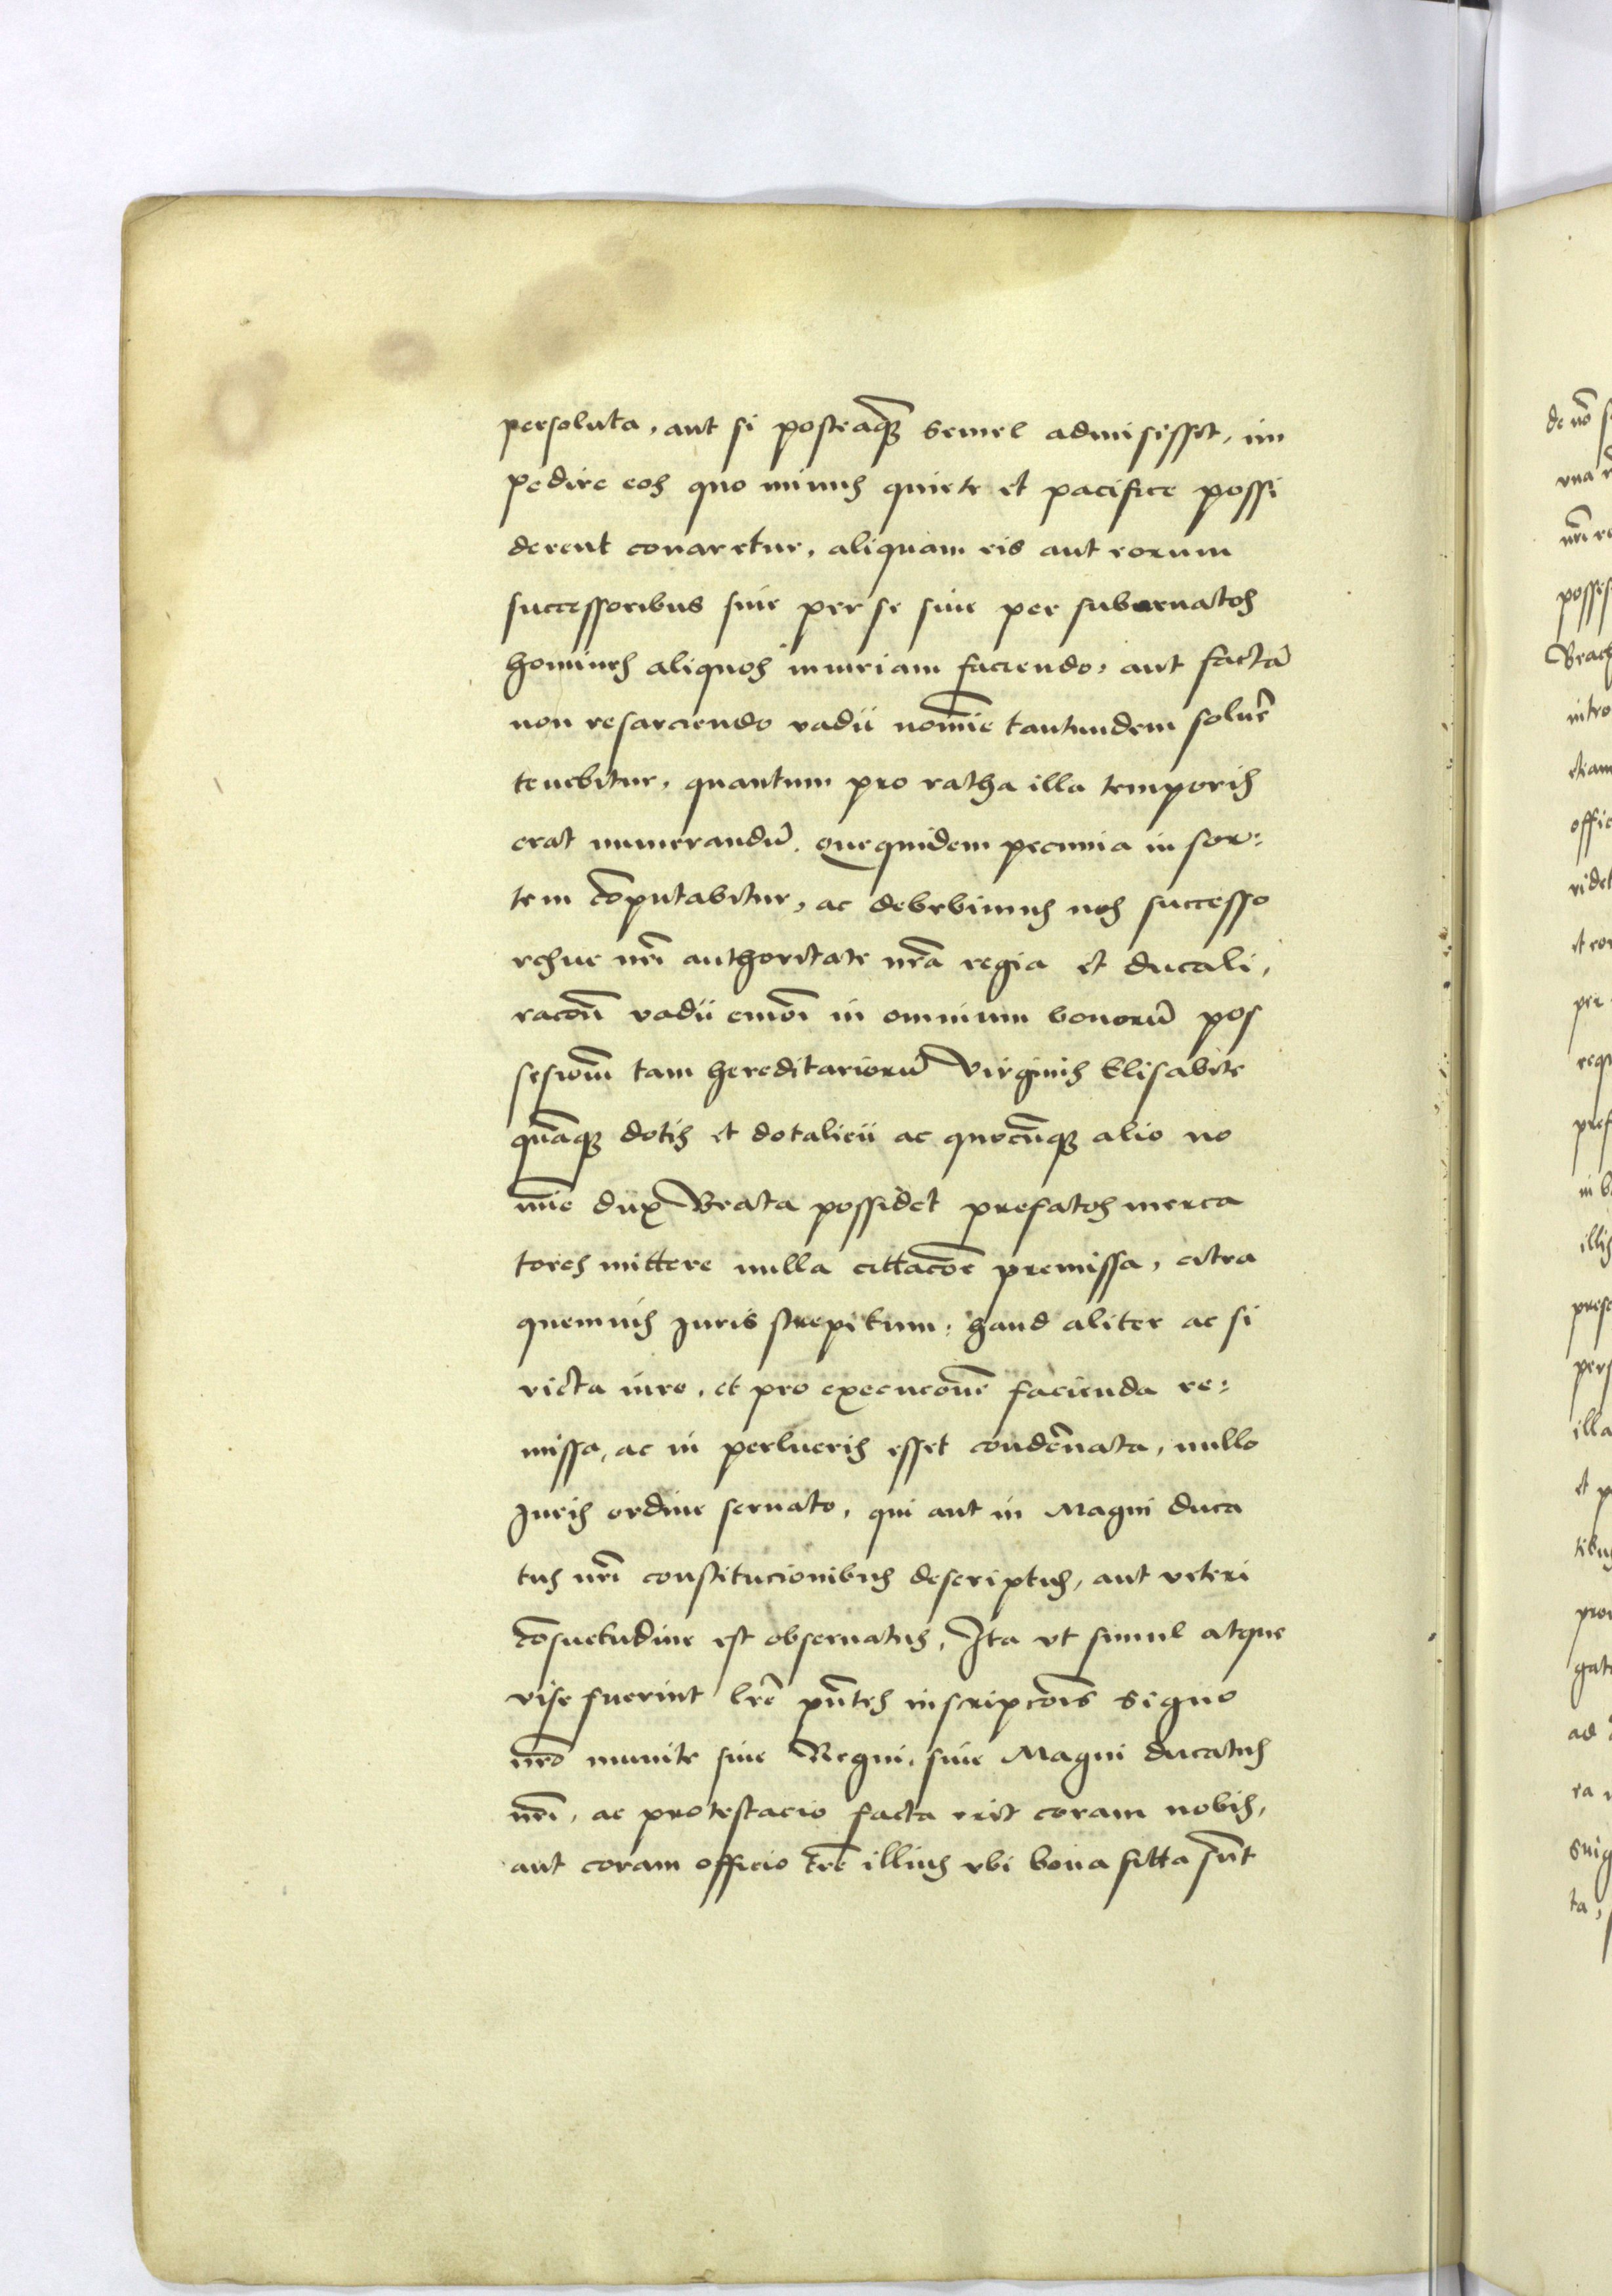 persoluta, aut si posteaq̃ȝ semel admisisset, im
pedire eos quo minus quiete et pacifice possi
derent conaretur, aliquam eis aut eorum
successoribus siue per se siue per subornatos
homines aliquos iniuriam faciendo, aut factã
non resarciendo vadii noĩe tantundem soluẽ
tenebitur, quantum pro ratha illa temporis
erat numerandũ. que quidem pecunia in sor:
tem cõputabitur, ac debebimus nos successo
resue nr̃i authoritate nr̃a regia et ducali,
racõn vadii in omnium bonorũ pos
sesionẽ tam hereditariorũ virginis Elisabete
quãqȝ dotis et dotalicii ac quocũqȝ alio no
mĩe dux Beata possidet prefatos merca
tores mittere nulla cittacõe premissa, citra
quemuis Juris strepitum, haud aliter ac si
victa iure, et pro execucõne facienda re:
missa, ac in perlucris esset condẽnata, nullo
Juris ordine seruato, qui aut in Magni duca
tus nr̃i constitucionibus descriptus, aut veteri
cõsuetudine est obseruatus, Ita vt simul atque
vise fuerint lr̃e pñtes inscripcõis signo
nr̃o munite siue Regni, siue Magni ducatus
nr̃i, ac protestacio facta erit coram nobis,
aut coram officio tr̃e illius vbi bona sitta sũt
de nõ
vna
nr̃i
intro
etiam
per
illis
illa
et
ad
ta,